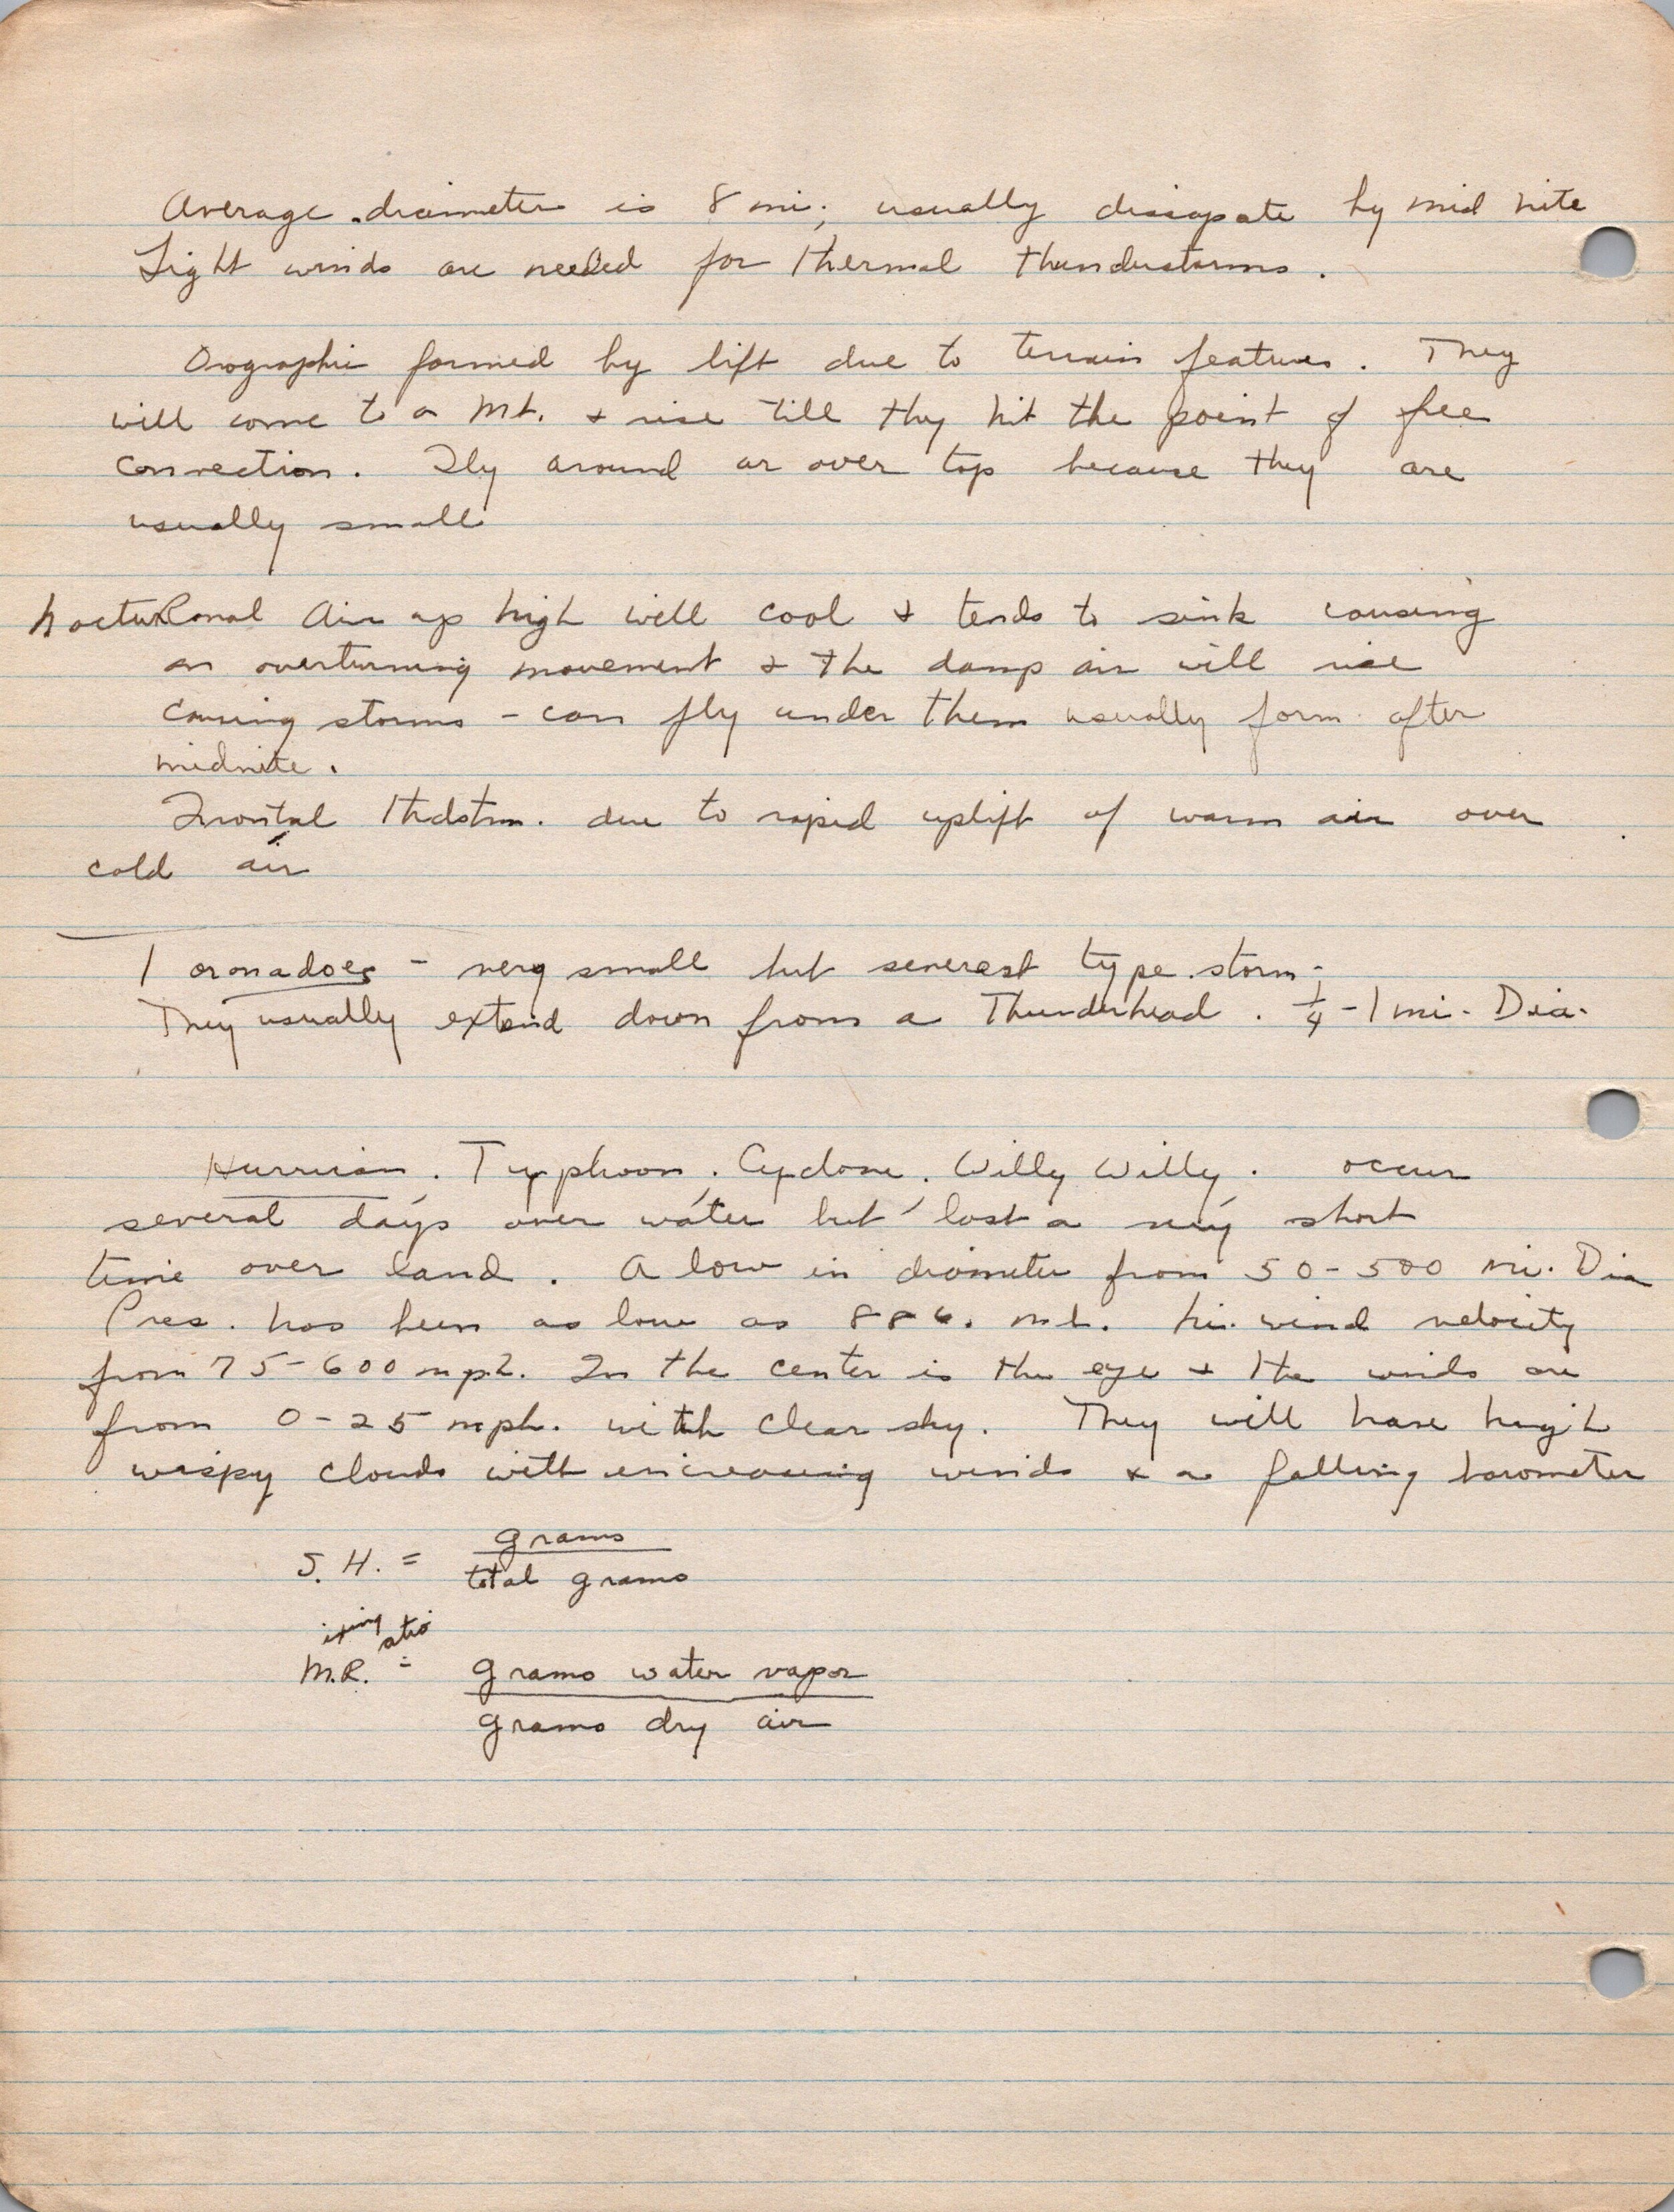 Average diameter is 8 mi; usually dissapate by mid nite
Light winds are needed for thermal thunderstorms.
Orographic formed by lift due to terrain features. They
will come to a Mt. + rise till they hit the point of free
convection. Fly around or over top because they are
usually small
nocturnal Air up high will cool + tends to sink causing
an overturning movement + the damp air will rise
causing storms - can fly under them usually form after
midnite.
Frontal thdstm. due to rapid uplift of warm air over
cold air
Toronadoes - very small but severest type storm-
They usually extend down from a Thunderhead. 1/4 - 1 mi. Dia.
Hurrican, Typhoon, Cyclone, Willy Willy. occur
several days over water but last a very short
time over land. A low in diameter from 50-500 mi. Dia
Pres. has been as low as 886. mb. hi. wind velocity
from 75-600 mph. In the center is the eye + the winds are
from 0-25 mph. with clear sky. They will have hugh
wispy clouds with increasing winds + a falling barometer
S.H. = grams
total grams
ixing atio
M.R. = grams water vapor
grams dry air